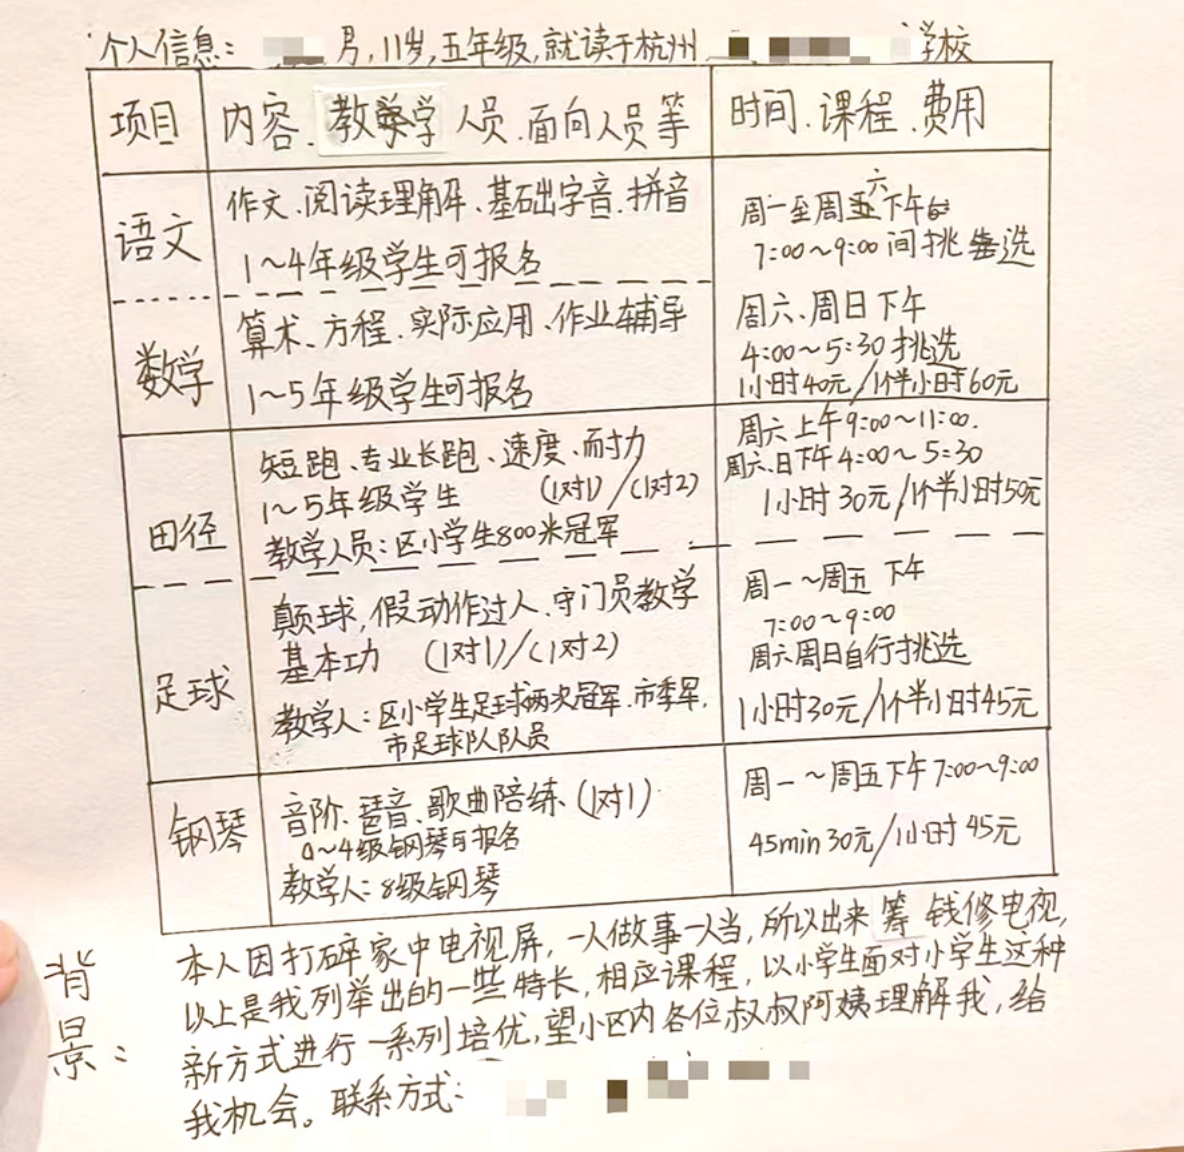 个人信息： 男，11岁，五年级，就读于杭州 学校
项目
内容、教学人员、面向人员等
时间、课程、费用
语文
作文、阅读理解、基础字音、拼音
1～4年级学生可报名
周一至周六下午
7:00～9:00间挑选
数学
算术、方程、实际应用、作业辅导
1～5年级学生可报名
周六、周日下午
4:00～5:30挑选
1小时40元/1个半小时60元
田径
短跑、专业长跑、速度、耐力
1～5年级学生 （1对1）/（1对2）
教学人员：区小学生800米冠军
周六上午9:00～11:00.
周六、日下午4:00～5:30
1小时30元/1个半小时50元
足球
颠球，假动作过人、守门员教学
基本功 （1对1）/（1对2）
教学人：区小学生足球两次冠军、市季军，
市足球队队员
周一～周五下午
7:00～9:00
周六周日自行挑选
1小时30元/1个半小时45元
钢琴
音阶、琶音、歌曲陪练、（1对1）
0～4级钢琴可报名
教学人：8级钢琴
周一～周五下午7:00～9:00
45min30元/1小时45元
背景：
本人因打碎家中电视屏，一人做事一人当，所以出来筹钱修电视，
以上是我列举出的一些特长，相应课程，以小学生面对小学生这种
新方式进行一系列培优，望小区内各位叔叔阿姨理解我，给
我机会。联系方式：